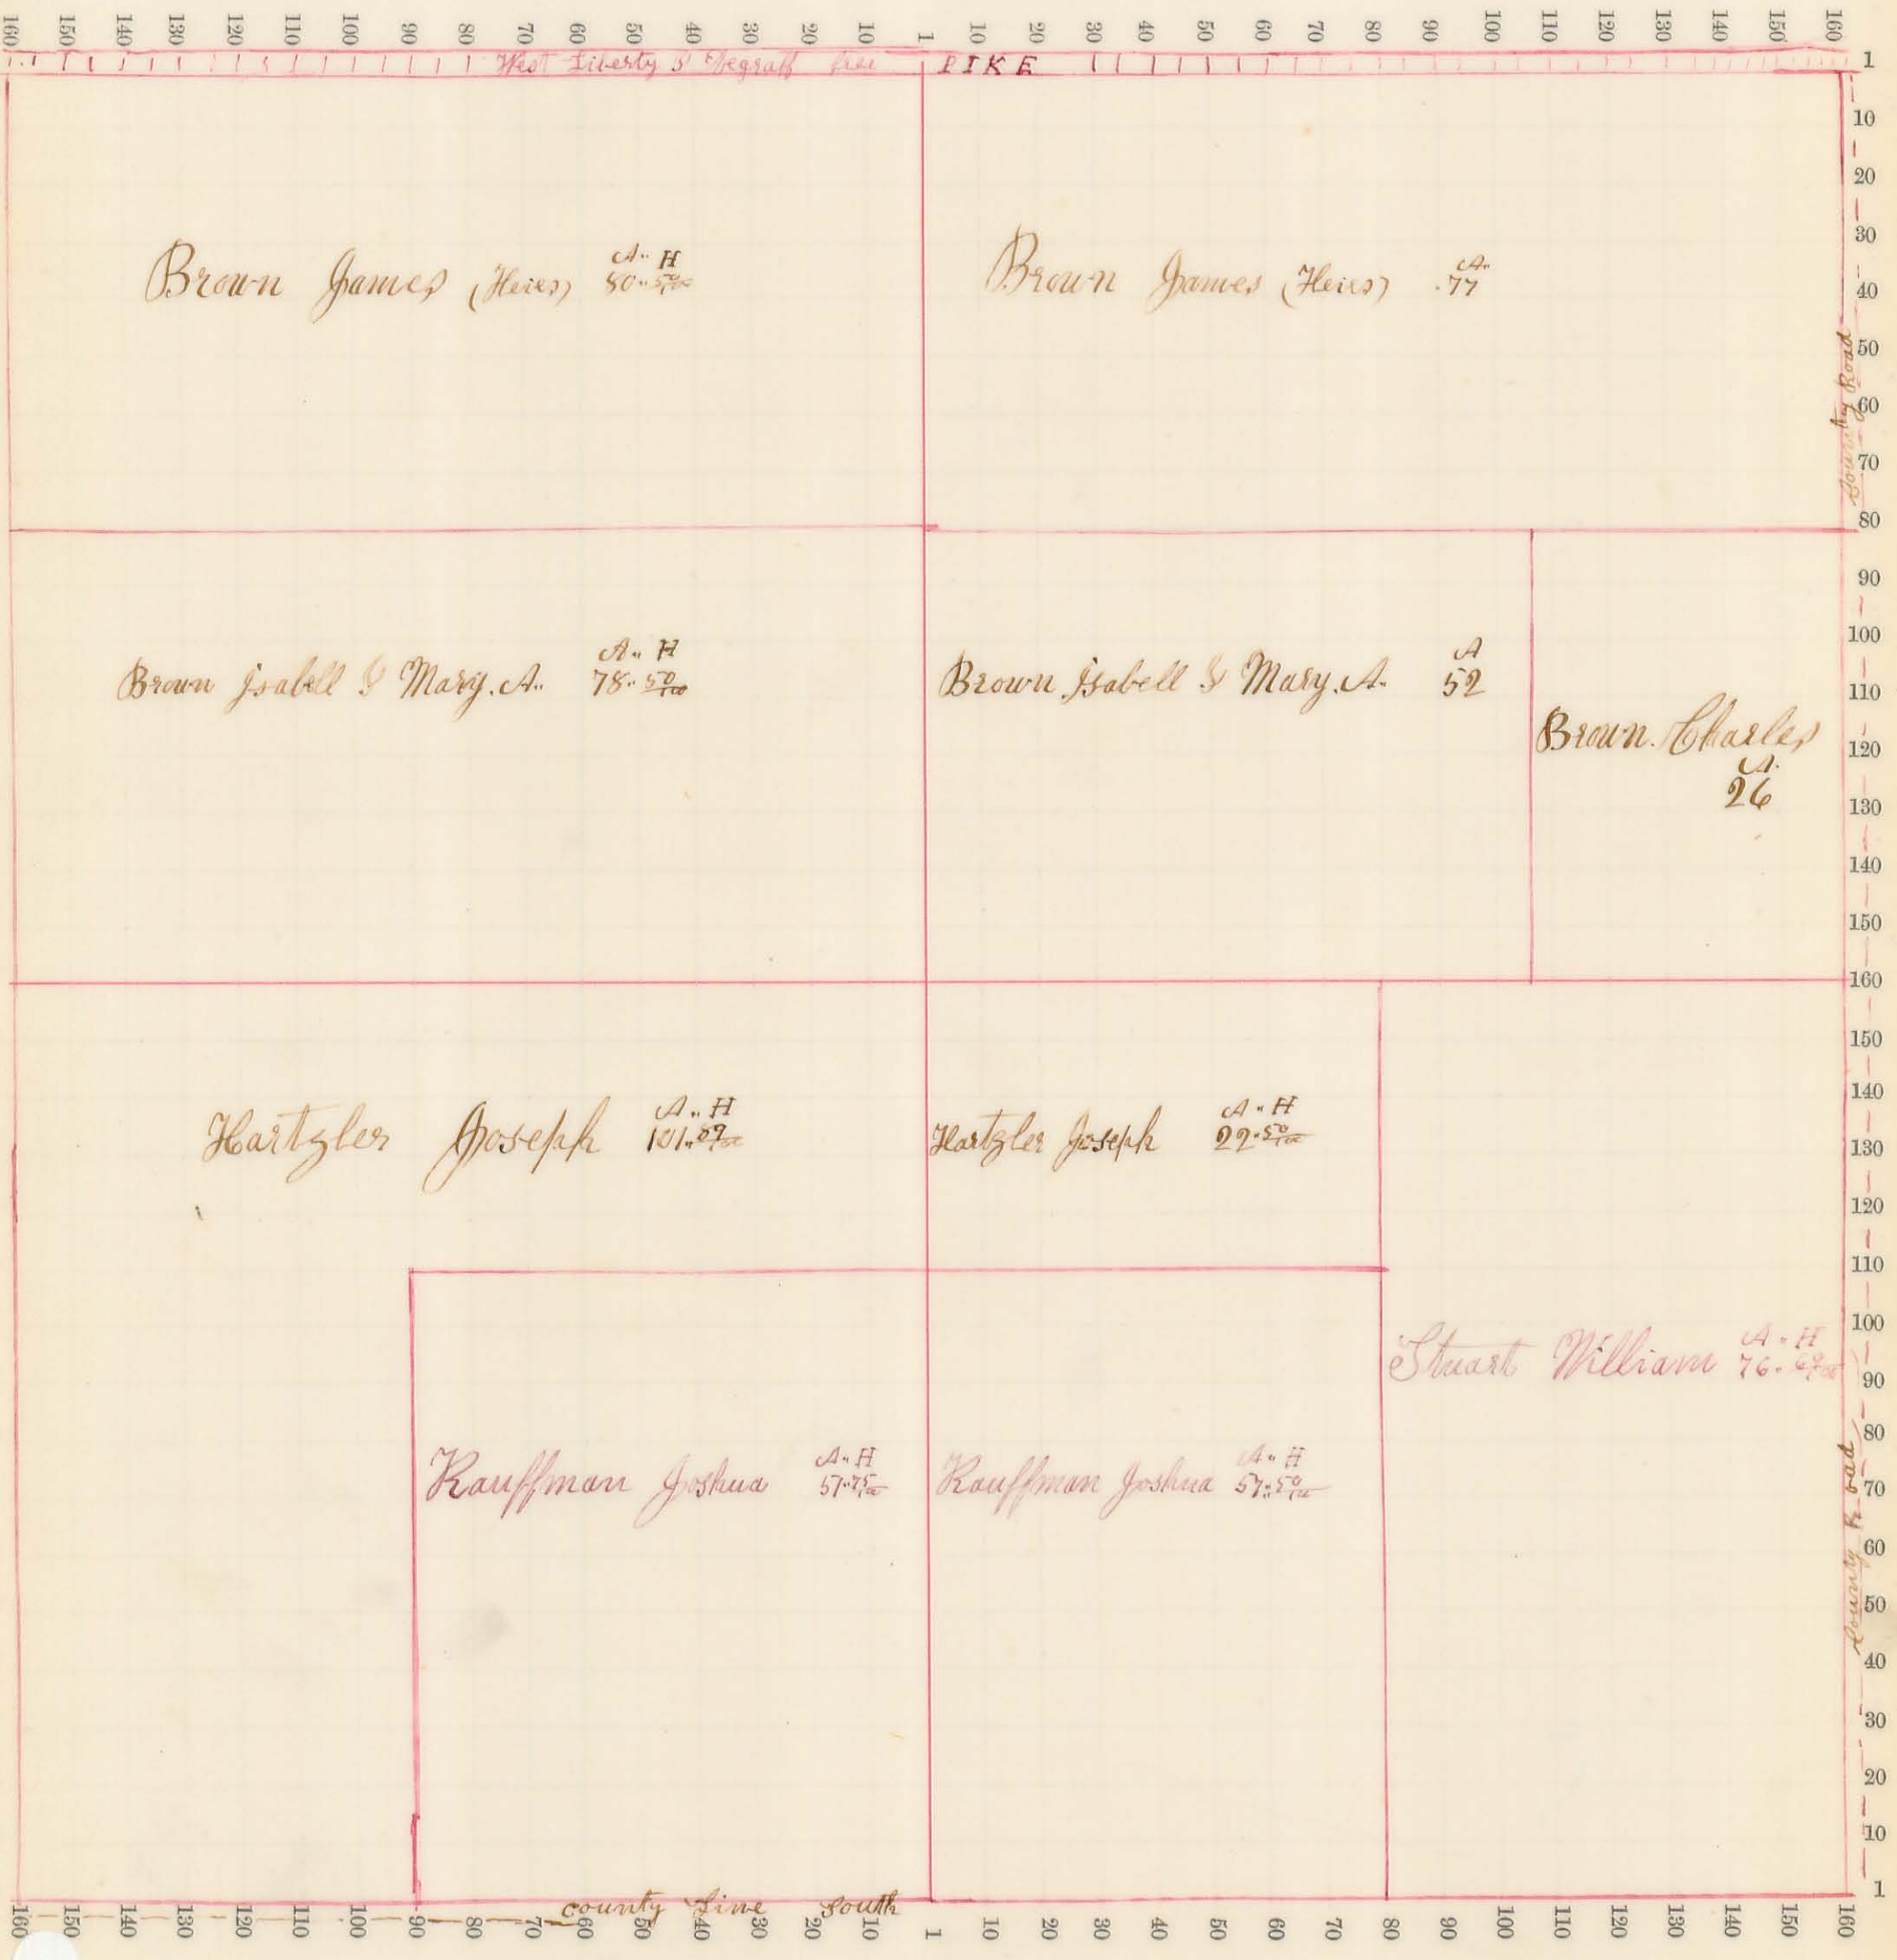 160 150 140 130 120 110 100 90 80 70 60 50 40 30 20 10 1 10 20 30 40 50 60 70 80 90 100 110 120 130 140 150 160
West Liberty & Degraff free PIKE
1
10
20
30
40
50
60
70
80
90
100
110
120
130
140
150
160
150
140
130
120
110
100
90
80
70
60
50
40
30
20
10
1
Country Road
County Road
A.. H
Brown James (Heirs) 80.. 50/100
A..
Brown James (Heirs) .77
A.. H
Brown Isabell & Mary. A.. 78.. 50/100
A
Brown Isabell & Mary. A.. 52
Brown. Charles
A.
26
A.. H
Hartzler Joseph 101..
A.. H
Hartzler Joseph 22.. 50/100
A.. H
Stuart William 76..
A.. H
Kauffman Joshua 57.. 75/100
A.. H
Kauffman Joshua 57.. 50/100
county Line South
160 150 140 130 120 110 100 90 80 70 60 50 40 30 20 10 1 10 20 30 40 50 60 70 80 90 100 110 120 130 140 150 160